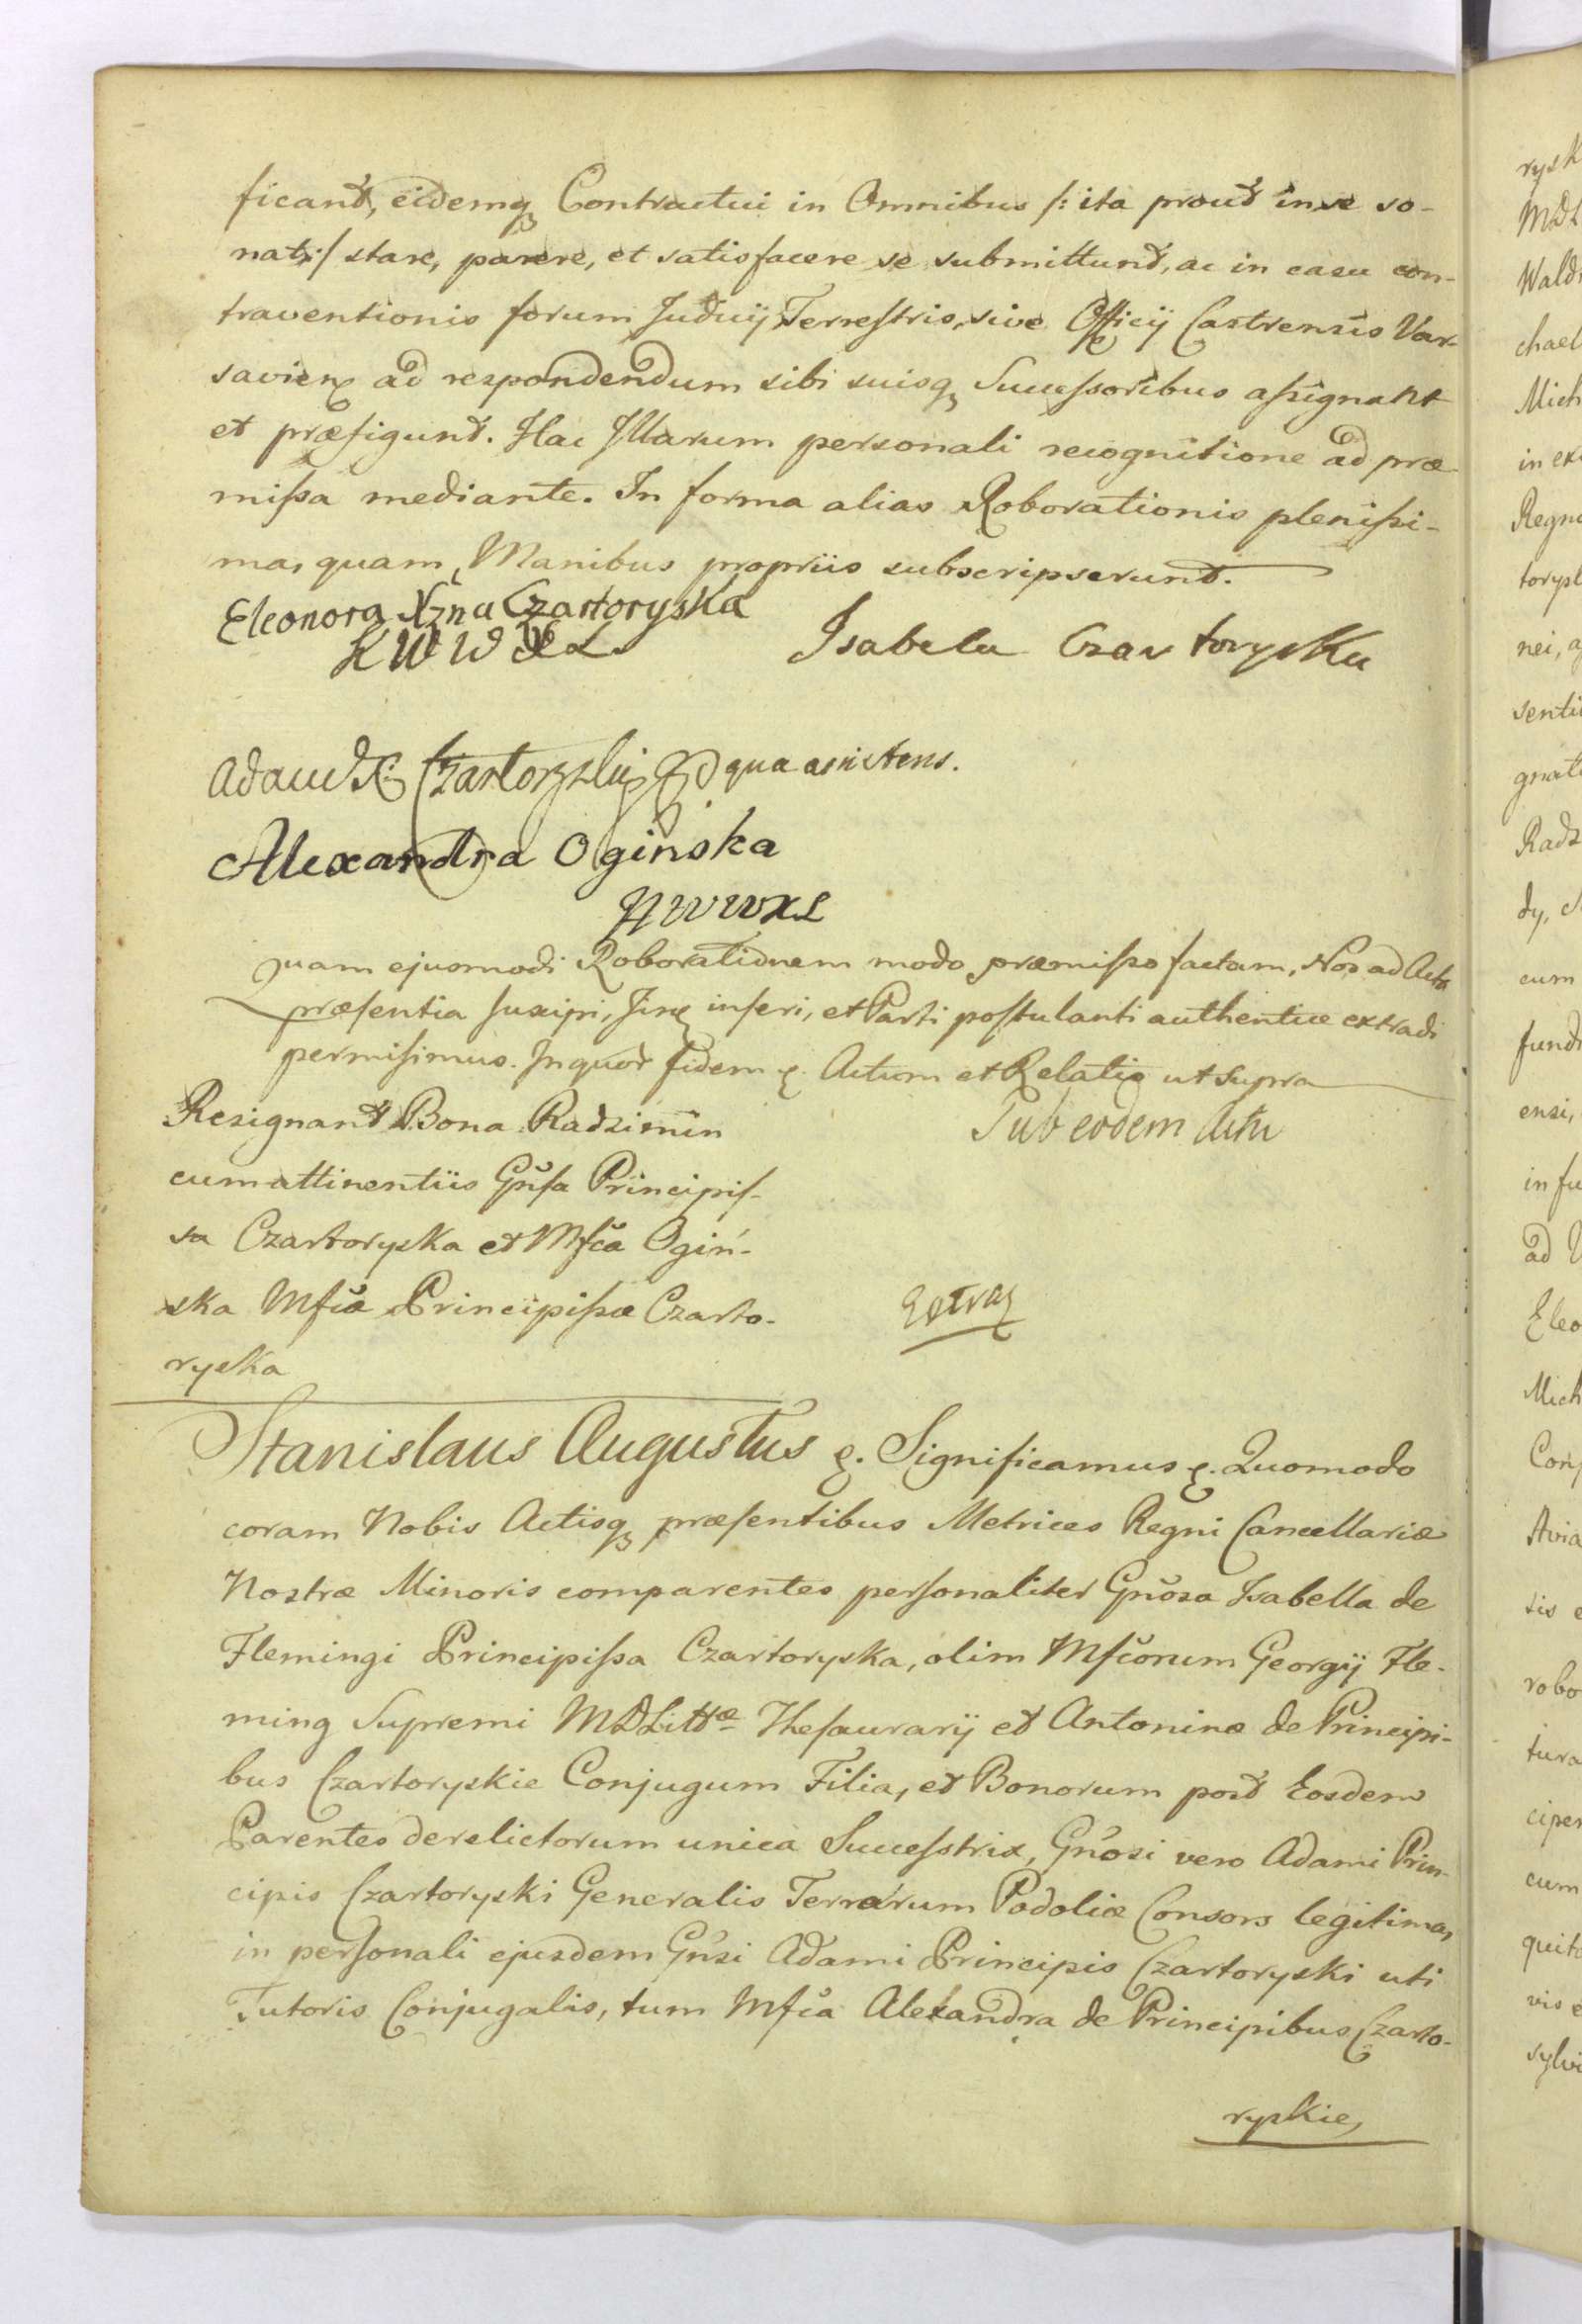 ficand, eidemq Contractui in Omnibus /: ita proud in se so-
nat :/ stare, parere, et satisfacere se submittund, ac in casu con-
traventionis forum Judicij Terrestris, sive Officij Castrensis Var-
savien ad respondendum sibi suisq Successoribus assignant
et præfigund. Hac Illarum personali recognitione ad præ-
missa mediante. In forma alias Roborationis plenissi-
ma, quam Manibus propriis subscripserund.
Eleonora Xzna Czartoryska
K W W X L
Isabela Czartoryska
Adam X Czartoryski qua assistens.
Alexandra Ogińska
H W W X L
Quam ejusmodi Roborationem modo præmisso factam, Nos ad Acta
præsentia suscipi, Jinq inseri, et Parti postulanti authentice extradi
permisimus. In quod fidem &. Actum et Relatio ut supra
Resignand Bona Radzimin
Sub eodem Actu
cum attinentiis Gnsa Principis-
sa Czartoryska et Mfca Ogiń-
ska Mfcæ Principissæ Czarto-
Extrax
ryska
Stanislaus Augustus &. Significamus &. Quomodo
coram Nobis Actisq præsentibus Metrices Regni Cancellariæ
Nostræ Minoris comparentes personaliter Gnosa Isabella de
Flemingi Principissa Czartoryska, olim Mfcorum Georgij Fle-
ming Supremi MDLittæ Thesaurarij et Antoninæ de Principi-
bus Czartoryskie Conjugum Filia, et Bonorum post Eosdem
Parentes derelictorum unica Successtrix, Gnosi vero Adami Prin-
cipis Czartoryski Generalis Terrarum Podoliæ Consors legitima,
in personali ejusdem Gnsi Adami Principis Czartoryski uti
Tutoris Conjugalis, tum Mfca Alexandra de Principibus Czarto-
ryskie,